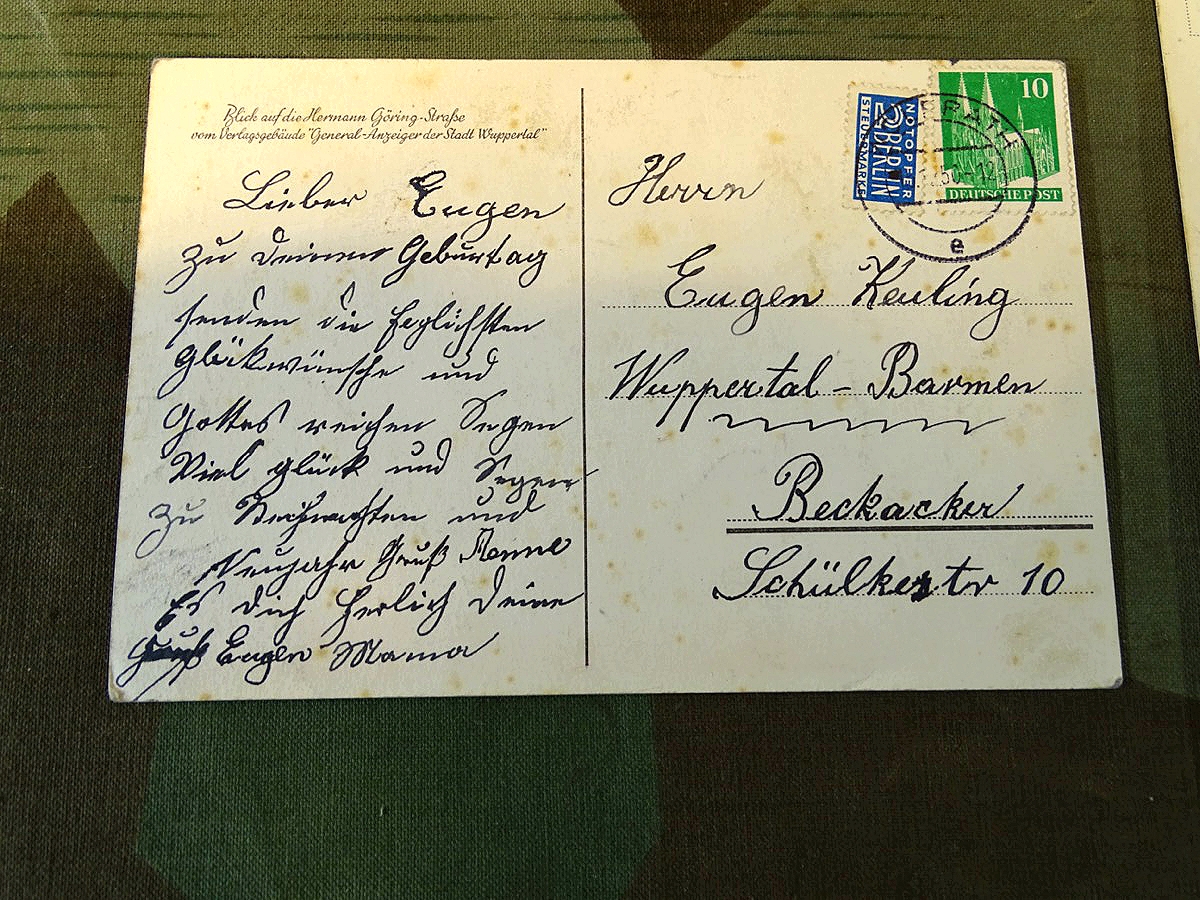 Blick auf die Hermann Göring-Straße
vom Verlagsgebäude "General-Anzeiger der Stadt Wuppertal"
Lieber Eugen
zu deinen Geburtag
senden die
Glükwünsche und
Gottes reichen Segen
Viel glück und Segen
zu Weihnachten und
Neujahr Gruß
Es dich herlich deine
Eugen Mama
NOTOPFER
2 BERLIN
STEUERMARKE
10
DEUTSCHE POST
50.-12
e
Herrn
Eugen Keuling
Wuppertal - Barmen
Beckacker
Schülkestr 10